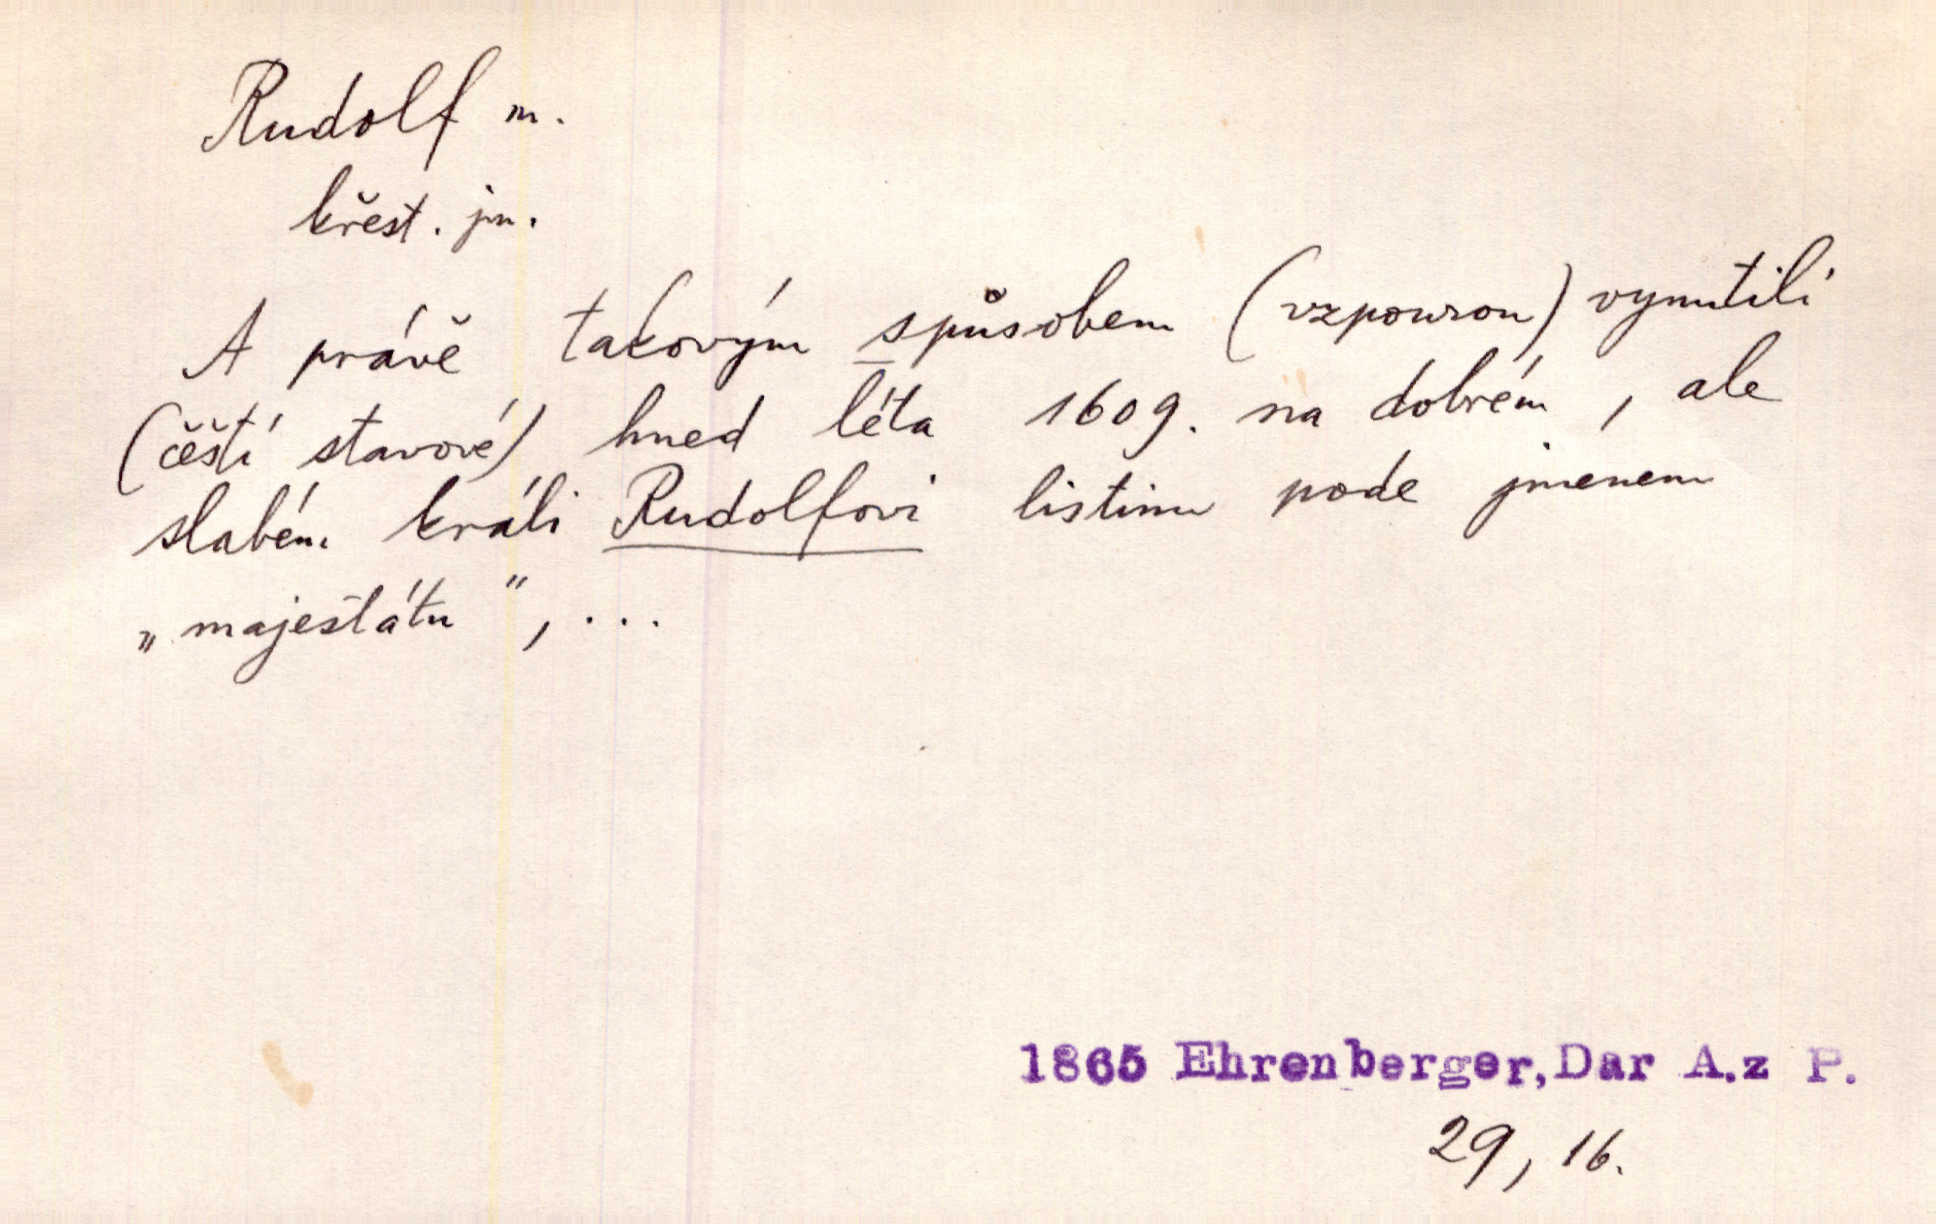 Rudolf m.
křest. jm.
A právě takovým spůsobem (vzpourou) vynutili
(čeští stavové) hned léta 1609. na dobrém, ale
slabém králi Rudolfovi listinu pode jmenem
„majestátu", ...
1865 Ehrenberger, Dar A.z P.
29, 16.